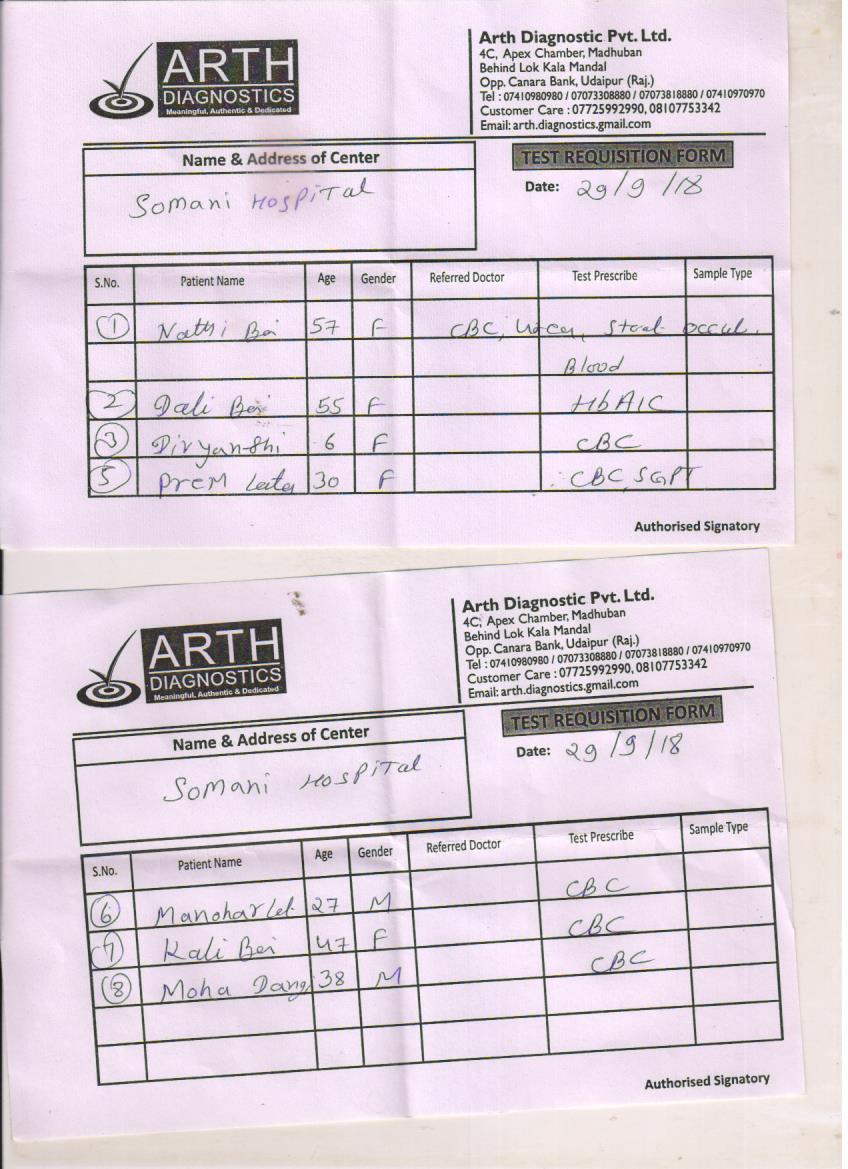 ARTH
DIAGNOSTICS
Meaningful, Authentic & Dedicated
Arth Diagnostic Pvt. Ltd.
4C, Apex Chamber, Madhuban
Behind Lok Kala Mandal
Opp. Canara Bank, Udaipur (Raj.)
Tel : 07410980980 / 07073308880 / 07073818880 / 07410970970
Customer Care : 07725992990, 08107753342
Email: arth.diagnostics.gmail.com
Name & Address of Center
TEST REQUISITION FORM
Somani HOSPITal
Date: 29/9/18
S.No. Patient Name Age Gender Referred Doctor Test Prescribe Sample Type
1 Nathi Bai 57 F CBC, Stool occul.
Blood
2 Dali Bai 55 F HbA1C
3 Divyanshi 6 F CBC
5 Prem Lata 30 F CBC, SGPT
Authorised Signatory
ARTH
DIAGNOSTICS
Meaningful, Authentic & Dedicated
Arth Diagnostic Pvt. Ltd.
4C, Apex Chamber, Madhuban
Behind Lok Kala Mandal
Opp. Canara Bank, Udaipur (Raj.)
Tel : 07410980980 / 07073308880 / 07073818880 / 07410970970
Customer Care : 07725992990, 08107753342
Email: arth.diagnostics.gmail.com
Name & Address of Center
TEST REQUISITION FORM
Somani HOSPITal
Date: 29/9/18
S.No. Patient Name Age Gender Referred Doctor Test Prescribe Sample Type
6 Manoharlal 27 M CBC
7 Kali Bai 47 F CBC
8 Moha Dangi 38 M CBC
Authorised Signatory